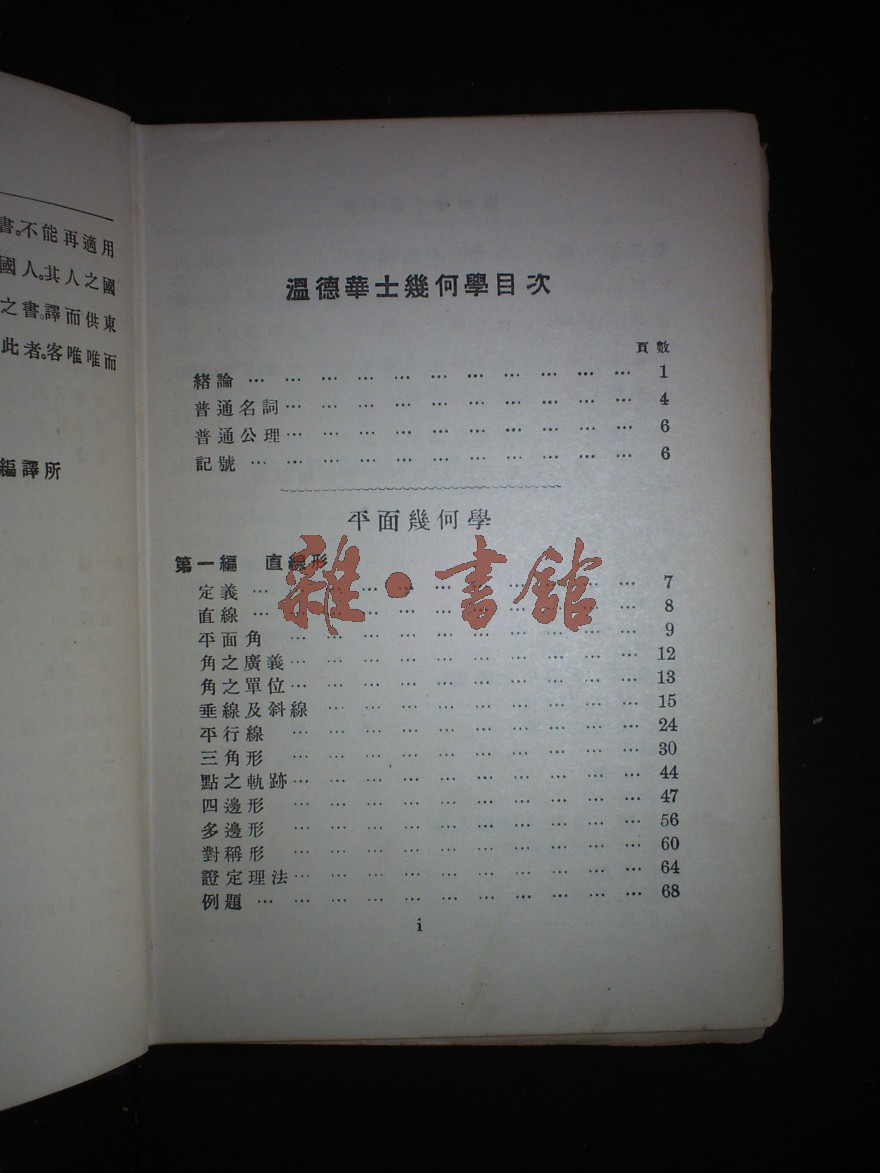 書。不能再適用
國人。其人之國
之書。譯而供東
此者。客唯唯而
編譯所
溫德華士幾何學目次
頁數
緒論 … … … … … … … … … … … 1
普通名詞 … … … … … … … … … … 4
普通公理 … … … … … … … … … … 6
記號 … … … … … … … … … … … 6
平面幾何學
第一編 直線形
定義 … … … … … … … … … … … 7
直線 … … … … … … … … … … … 8
平面角 … … … … … … … … … … 9
角之廣義 … … … … … … … … … … 12
角之單位 … … … … … … … … … … 13
垂線及斜線 … … … … … … … … … 15
平行線 … … … … … … … … … … 24
三角形 … … … … … … … … … … 30
點之軌跡 … … … … … … … … … … 44
四邊形 … … … … … … … … … … 47
多邊形 … … … … … … … … … … 56
對稱形 … … … … … … … … … … 60
證定理法 … … … … … … … … … … 64
例題 … … … … … … … … … … … 68
i
雜·書館